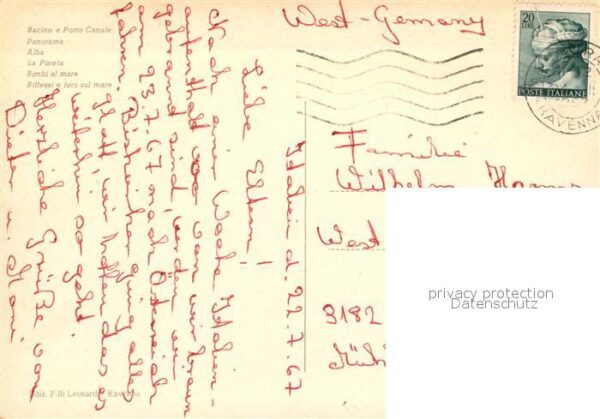 Bacino e Porto Canale
Panorama
Alba
La Pineta
Bimbi al mare
Riflessi e luci sul mare
West-Gemany
20
LIRE
POSTE ITALIANE
RAVENN
Italien d. 22.7.67
Liebe Eltern!
Nach einer Woche Italien-
aufenthalt wo wir braun
gebrannt sind, werden wir
am 23.7.67 nach Österreich
fahren. Bisher ging alles
glatt, wir hoffen das es
weiterhin so geht.
Herzliche Grüße von
Dieter u. Moni.
Familie
Wilhelm
West
3182
privacy protection
Datenschutz
Ediz. F.lli Leonardi Ravenna